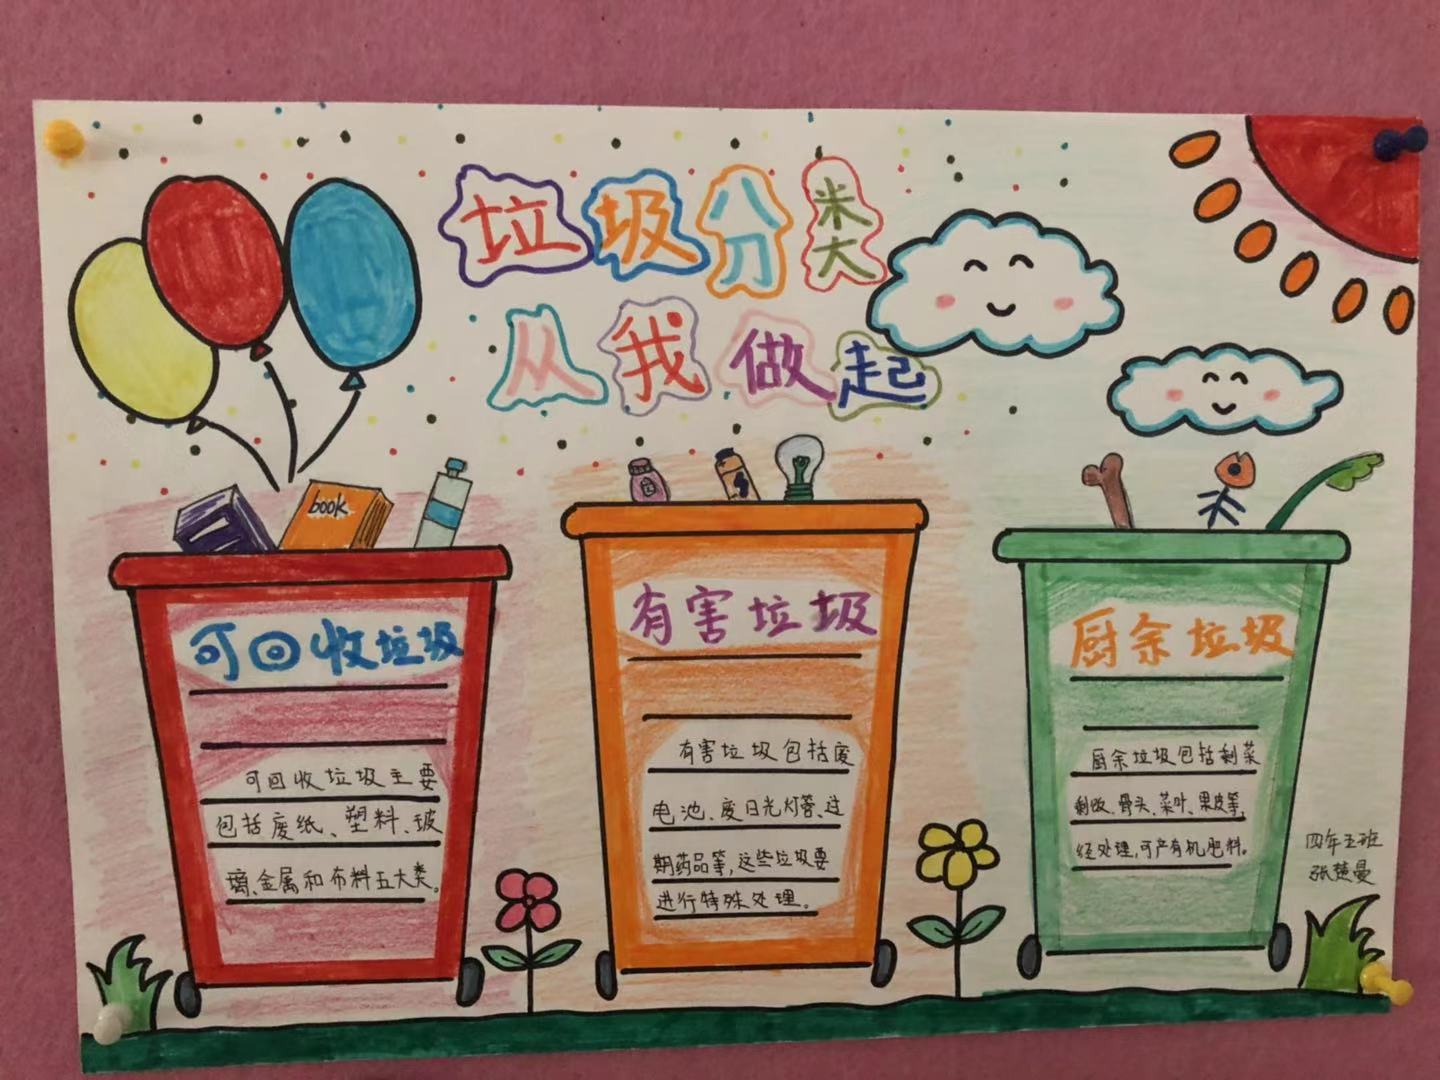 垃圾分类
从我做起
book
可回收垃圾
可回收垃圾主要
包括废纸、塑料、玻
璃、金属和布料五大类。
有害垃圾
有害垃圾包括废
电池、废日光灯管、过
期药品等,这些垃圾要
进行特殊处理。
厨余垃圾
厨余垃圾包括剩菜
剩饭、骨头、菜叶、果皮等,
经处理,可产有机肥料。
四年五班
张楚曼